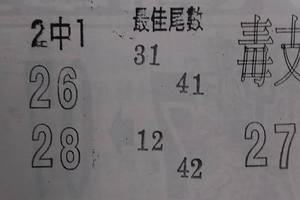 2中1
26
28
最佳尾數
31
41
12
42
毒
27